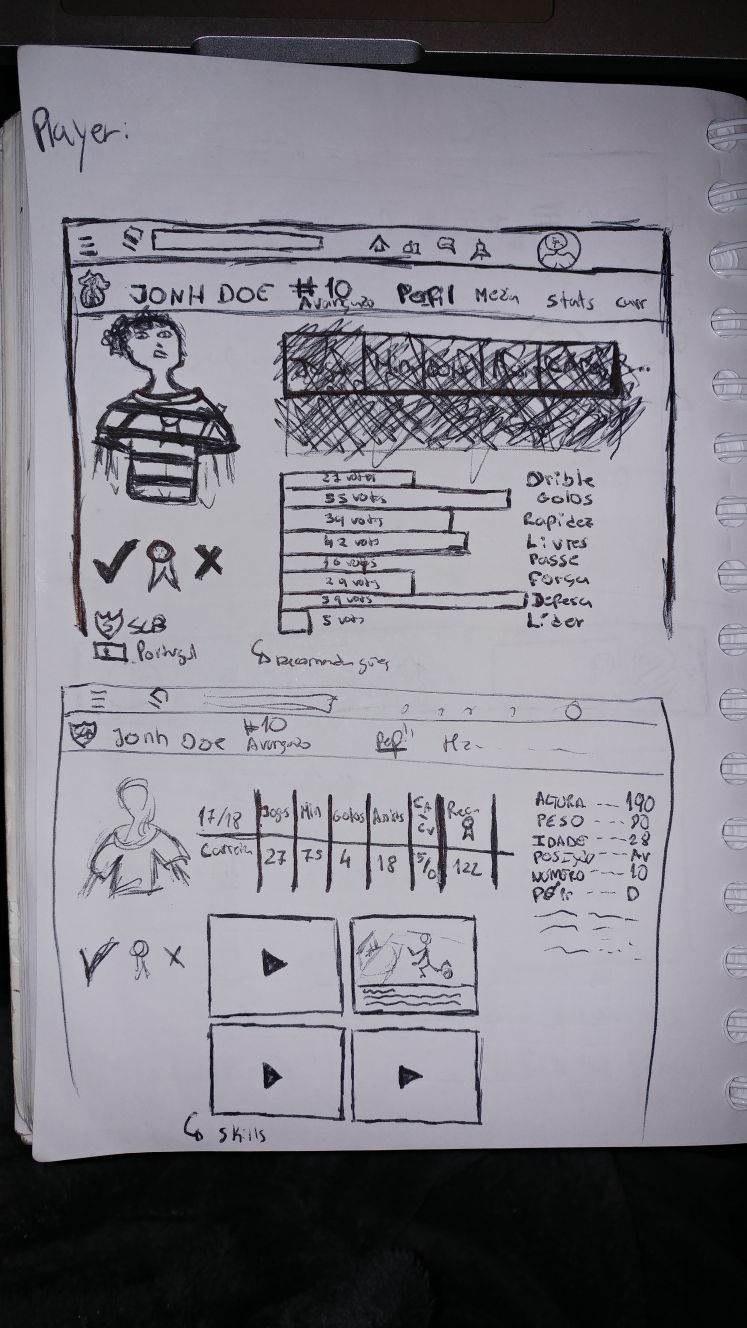 Player:
JONH DOE #10 Perfil Media Stats curr
Avançado
27 votos Drible
55 votos Golos
34 votos Rapidez
42 votos Livres
votos Passe
29 votos Força
59 votos Defesa
5 votos Líder
SLB
Portugal
recomendações
Jonh Doe #10
Avançado
17/18 Jogs Min Golos Assis CA CV Rec
Carreira 27 75 4 18 5/0 122
ALTURA --- 190
PESO ---
IDADE --- 28
POSIÇÃO --- AV
NÚMERO --- 10
PÉ --- D
Skills